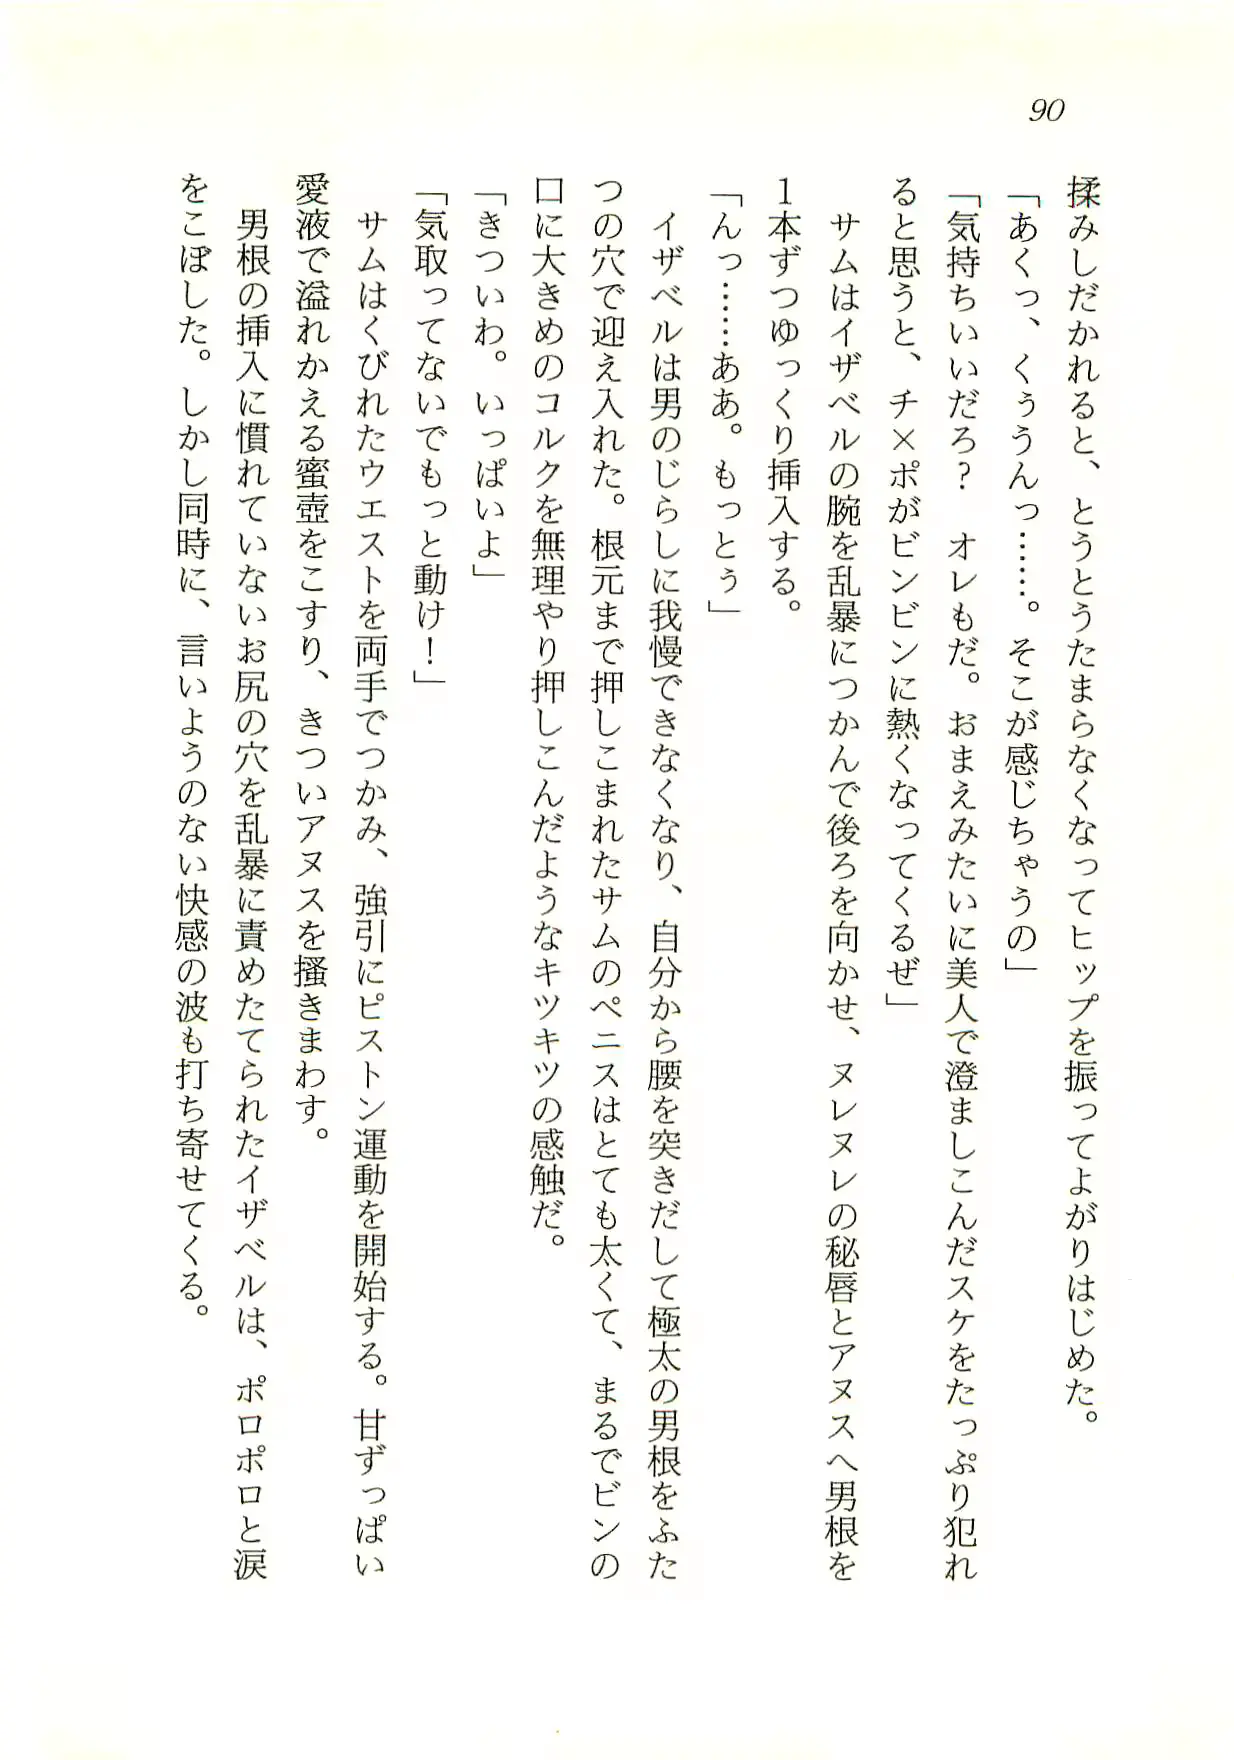 90
揉みしだかれると、とうとうたまらなくなってヒップを振ってよがりはじめた。
「あくっ、くぅうんっ……。そこが感じちゃうの」
「気持ちいいだろ?　オレもだ。おまえみたいに美人で澄ましこんだスケをたっぷり犯れ
ると思うと、チ×ポがビンビンに熱くなってくるぜ」
　サムはイザベルの腕を乱暴につかんで後ろを向かせ、ヌレヌレの秘唇とアヌスへ男根を
1本ずつゆっくり挿入する。
「んっ……ああ。もっとぅ」
　イザベルは男のじらしに我慢できなくなり、自分から腰を突きだして極太の男根をふた
つの穴で迎え入れた。根元まで押しこまれたサムのペニスはとても太くて、まるでビンの
口に大きめのコルクを無理やり押しこんだようなキツキツの感触だ。
「きついわ。いっぱいよ」
「気取ってないでもっと動け!」
　サムはくびれたウエストを両手でつかみ、強引にピストン運動を開始する。甘ずっぱい
愛液で溢れかえる蜜壺をこすり、きついアヌスを掻きまわす。
　男根の挿入に慣れていないお尻の穴を乱暴に責めたてられたイザベルは、ポロポロと涙
をこぼした。しかし同時に、言いようのない快感の波も打ち寄せてくる。